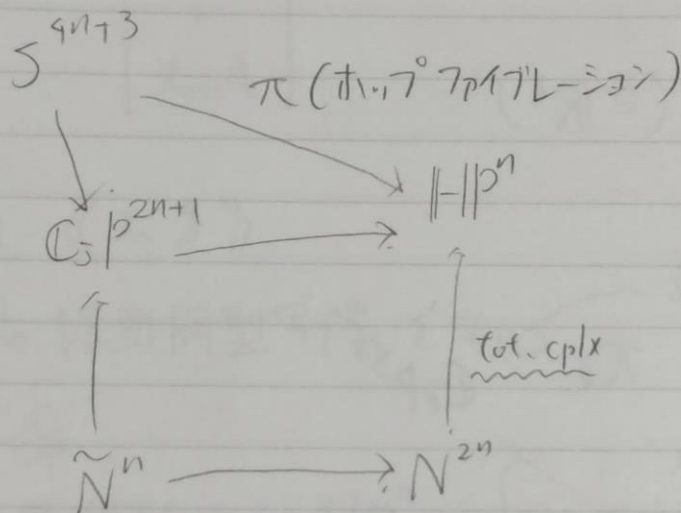 S^{4n+3}
π (ホップファイブレーション)
ℍP^n
P^{2n+1}
tot. cplx
Ñ^n → N^{2n}